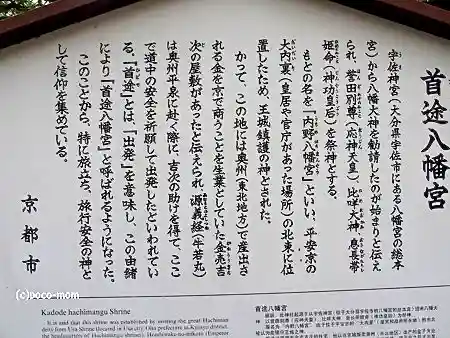 首途八幡宮
宇佐神宮（大分県宇佐市にある八幡宮の総本
宮）から八幡大神を勧請したのが始まりと伝え
られ、誉田別尊（応神天皇）、比咩大神、息長帯
姫命（神功皇后）を祭神とする。
もとの名を「内野八幡宮」といい、平安京の
大内裏（皇居や官庁があった場所）の北東に位
置したため、王城鎮護の神とされた。
かつて、この地には奥州（東北地方）で産出さ
れる金を京で商うことを生業としていた金売吉
次の屋敷があったと伝えられ、源義経（牛若丸）
は奥州平泉に赴く際に、吉次の助けを得て、ここ
で道中の安全を祈願して出発したといわれてい
る。「首途」とは、「出発」を意味し、この由緒
により「首途八幡宮」と呼ばれるようになった。
このことから、特に旅立ち、旅行安全の神と
して信仰を集めている。
京都市
(c)poco-mom
Kadode hachimangu Shrine
It is said that this shrine was established by inviting the great Hachiman
deity from Usa Shrine (located in Usa city, Oita prefecture in Kyushu district,
the headquarters of Hachimangu shrines). Hondawake-no-mikoto (Emperor
首途八幡宮